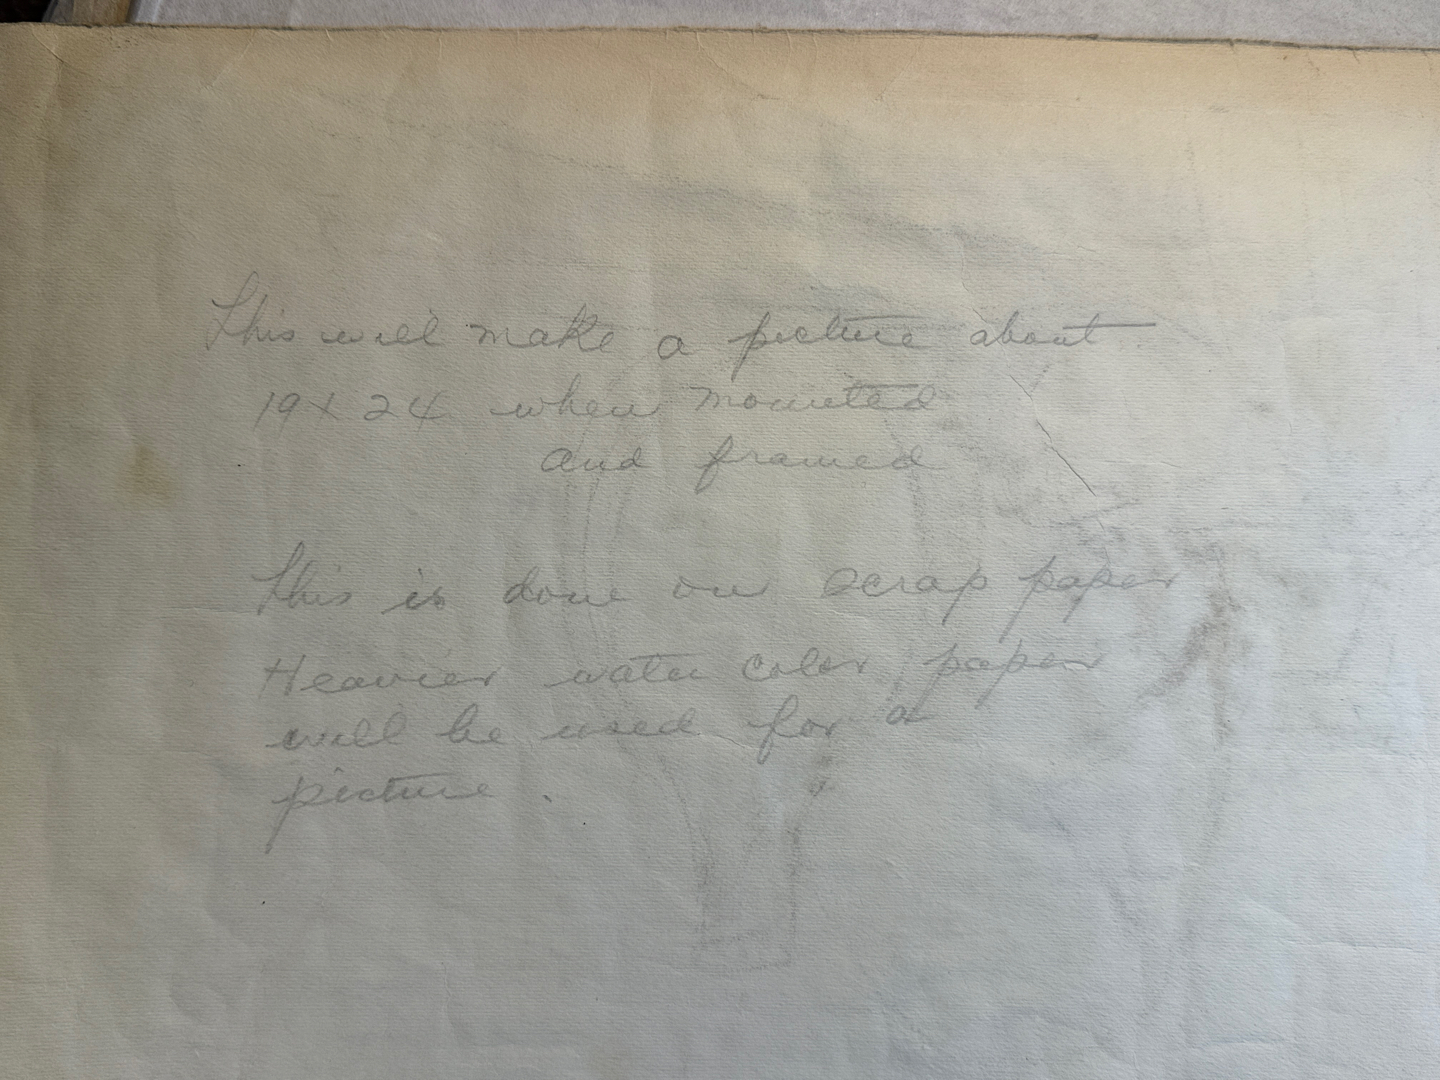 This will make a picture about
19 x 24 when mounted
and framed
This is done on scrap paper
Heavier water color paper
will be used for a
picture.